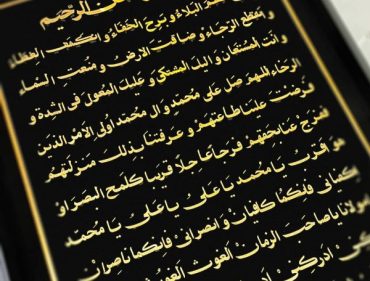 الرَّحيم
البَلاءُ وَ بَرِحَ الخَفاءُ وَ انكَشَفَ الغِطاءُ
وَ انقَطَعَ الرَّجاءُ وَ ضاقَتِ الأرضُ وَ مُنِعَتِ السَّماءُ
وَ أنتَ المُستَعانُ وَ اِلَيكَ المُشتَكى وَ عَلَيكَ المُعَوَّلُ فِى الشِّدَّةِ وَ
الرَّخاءِ اللهُمَّ صَلِّ عَلى مُحَمَّدٍ وَ الِ مُحَمَّدٍ اُولِى الاَمرِ الَّذينَ
فَرَضتَ عَلَينا طاعَتَهُم وَ عَرَّفتَنا بِذلِكَ مَنزِلَتَهُم
فَفَرِّج عَنّا بِحَقِّهِم فَرَجًا عاجِلًا قَريبًا كَلَمحِ البَصَرِ اَو
هُوَ اَقرَبُ يا مُحَمَّدُ يا عَلِىُّ يا عَلِىُّ يا مُحَمَّدُ
اِكفِيانى فَاِنَّكُما كافِيانِ وَ انصُرانى فَاِنَّكُما ناصِرانِ
مَولانا يا صاحِبَ الزَّمانِ الغَوثَ الغَوثَ
اَدرِكنى